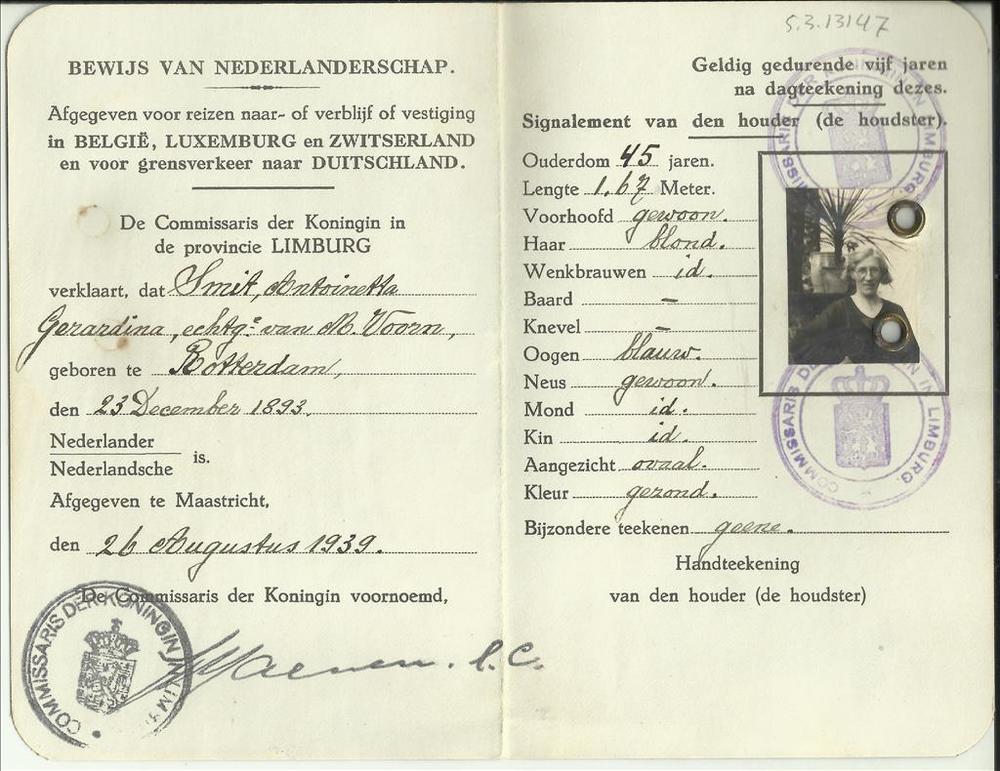 BEWIJS VAN NEDERLANDERSCHAP.
Afgegeven voor reizen naar- of verblijf of vestiging
in BELGIË, LUXEMBURG en ZWITSERLAND
en voor grensverkeer naar DUITSCHLAND.
De Commissaris der Koningin in
de provincie LIMBURG
verklaart, dat Smit, Antoinetta
Gerardina, echtge van M. Voorn,
geboren te Rotterdam,
den 23 December 1893.
Nederlander
Nederlandsche is.
Afgegeven te Maastricht,
den 26 Augustus 1939.
De Commissaris der Koningin voornoemd,
COMMISSARIS DER KONINGIN IN LIM
l. C.
5.3.13147
Geldig gedurende vijf jaren
na dagteekening dezes.
Signalement van den houder (de houdster).
Ouderdom 45 jaren.
Lengte 1.67 Meter.
Voorhoofd gewoon.
Haar blond.
Wenkbrauwen id.
Baard –
Knevel –
Oogen blauw.
Neus gewoon.
Mond id.
Kin id.
Aangezicht ovaal.
Kleur gezond.
Bijzondere teekenen geene.
Handteekening
van den houder (de houdster)
COMMISSARIS DER KONINGIN IN LIMBURG.
COMMISSARIS DER KONINGIN IN LIMBURG.